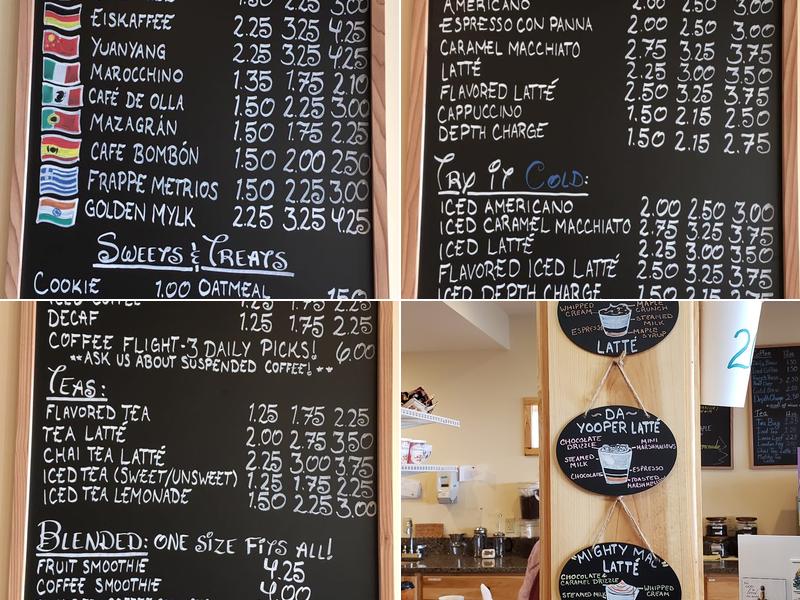 EISKAFFEE 2.25 3.25 4.25
YUANYANG 2.25 3.25 4.25
MAROCCHINO 1.35 1.75 2.10
CAFÉ DE OLLA 1.50 2.25 3.00
MAZAGRÁN 1.50 1.75 2.25
CAFE BOMBÓN 1.50 2.00 2.50
FRAPPE METRIOS 1.50 2.25 3.00
GOLDEN MYLK 2.25 3.25 4.25
SWEETS & TREATS
COOKIE 1.00 OATMEAL 1.50
AMERICANO 2.00 2.50 3.00
ESPRESSO CON PANNA 2.00 2.50 3.00
CARAMEL MACCHIATO 2.75 3.25 3.75
LATTÉ 2.25 3.00 3.50
FLAVORED LATTÉ 2.50 3.25 3.75
CAPPUCCINO 1.50 2.15 2.50
DEPTH CHARGE 1.50 2.15 2.75
TRY IT COLD:
ICED AMERICANO 2.00 2.50 3.00
ICED CARAMEL MACCHIATO 2.75 3.25 3.75
ICED LATTÉ 2.25 3.00 3.50
FLAVORED ICED LATTÉ 2.50 3.25 3.75
ICED DEPTH CHARGE 1.50 2.15 2.75
ICED COFFEE 1.25 1.75 2.25
DECAF 1.25 1.75 2.25
COFFEE FLIGHT-3 DAILY PICKS! 6.00
**ASK US ABOUT SUSPENDED COFFEE!**
TEAS:
FLAVORED TEA 1.25 1.75 2.25
TEA LATTÉ 2.00 2.75 3.50
CHAI TEA LATTÉ 2.25 3.00 3.75
ICED TEA (SWEET/UNSWEET) 1.25 1.75 2.25
ICED TEA LEMONADE 1.50 2.25 3.00
BLENDED: ONE SIZE FITS ALL!
FRUIT SMOOTHIE 4.25
COFFEE SMOOTHIE 4.00
WHIPPED CREAM
MAPLE CRUNCH
ESPRESSO
STEAMED MILK
MAPLE SYRUP
LATTÉ
~DA~
YOOPER LATTÉ
CHOCOLATE DRIZZLE
MINI MARSHMALLOWS
STEAMED MILK
ESPRESSO
CHOCOLATE
TOASTED MARSHMALLOW
"MIGHTY MAC"
LATTÉ
CHOCOLATE & CARAMEL DRIZZLE
WHIPPED CREAM
STEAMED
2
Coffee
Tea